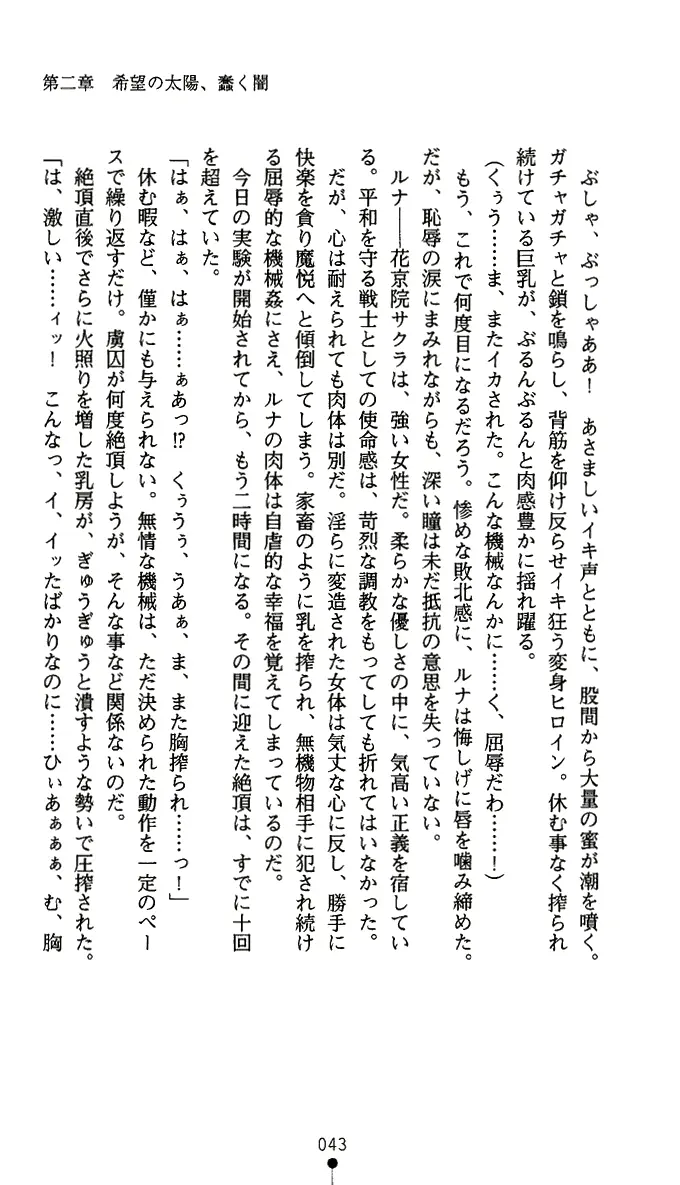 第二章　希望の太陽、蠢く闇
ぶしゃ、ぶっしゃああ！　あさましいイキ声とともに、股間から大量の蜜が潮を噴く。
ガチャガチャと鎖を鳴らし、背筋を仰け反らせイキ狂う変身ヒロイン。休む事なく搾られ
続けている巨乳が、ぶるんぶるんと肉感豊かに揺れ躍る。
（くぅう……ま、またイカされた。こんな機械なんかに……く、屈辱だわ……！）
もう、これで何度目になるだろう。惨めな敗北感に、ルナは悔しげに唇を噛み締めた。
だが、恥辱の涙にまみれながらも、深い瞳は未だ抵抗の意思を失っていない。
ルナ――花京院サクラは、強い女性だ。柔らかな優しさの中に、気高い正義を宿してい
る。平和を守る戦士としての使命感は、苛烈な調教をもってしても折れてはいなかった。
だが、心は耐えられても肉体は別だ。淫らに変造された女体は気丈な心に反し、勝手に
快楽を貪り魔悦へと傾倒してしまう。家畜のように乳を搾られ、無機物相手に犯され続け
る屈辱的な機械姦にさえ、ルナの肉体は自虐的な幸福を覚えてしまっているのだ。
今日の実験が開始されてから、もう二時間になる。その間に迎えた絶頂は、すでに十回
を超えていた。
「はぁ、はぁ、はぁ……ぁあっ!?　くぅうぅ、うあぁ、ま、また胸搾られ……っ！」
休む暇など、僅かにも与えられない。無情な機械は、ただ決められた動作を一定のペー
スで繰り返すだけ。虜囚が何度絶頂しようが、そんな事など関係ないのだ。
絶頂直後でさらに火照りを増した乳房が、ぎゅうぎゅうと潰すような勢いで圧搾された。
「は、激しい……ィッ！　こんなっ、イ、イッたばかりなのに……ひぃあぁぁぁ、む、胸
043